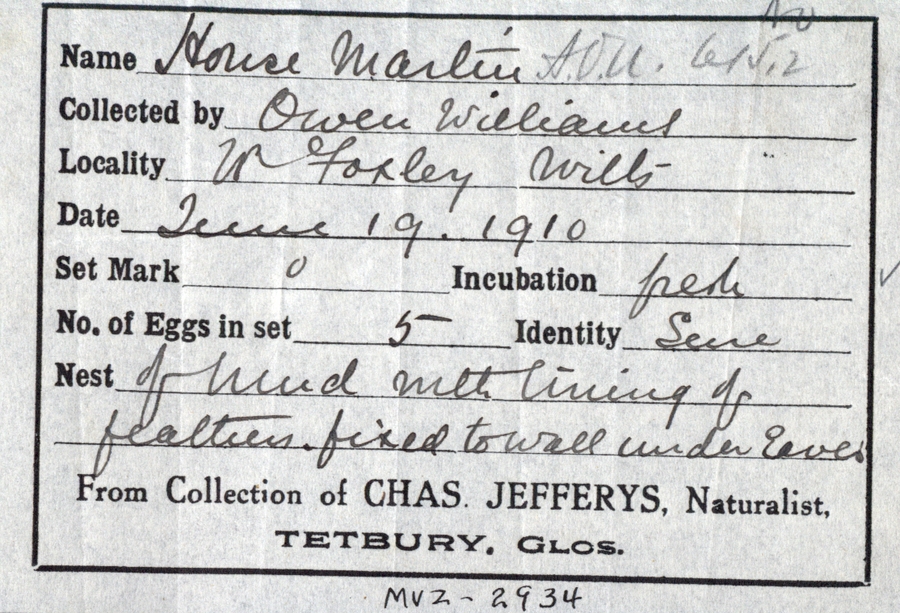 No
Name House Martin A.O.U. 615.2
Collected by Owen Williams
Locality Nr Foxley Wilts
Date June 19. 1910
Set Mark 0 Incubation fresh
No. of Eggs in set 5 Identity Sure
Nest of Mud with lining of
feathers. fixed to wall under Eaves
From Collection of CHAS. JEFFERYS, Naturalist,
TETBURY, GLOS.
MVZ - 2934